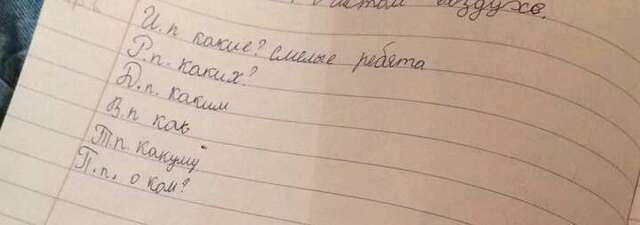 воздухе.
И.п какие? смелые ребята
Р.п. каких?
Д.п. каким
В.п как
Тп. какуму
П.п. о ком?